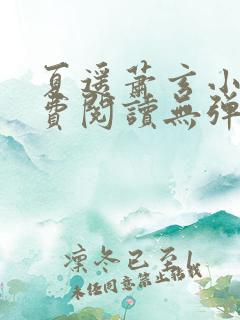 夏遥萧玄小
费阅读无弹
凛冬已至l
未经同意禁止转载